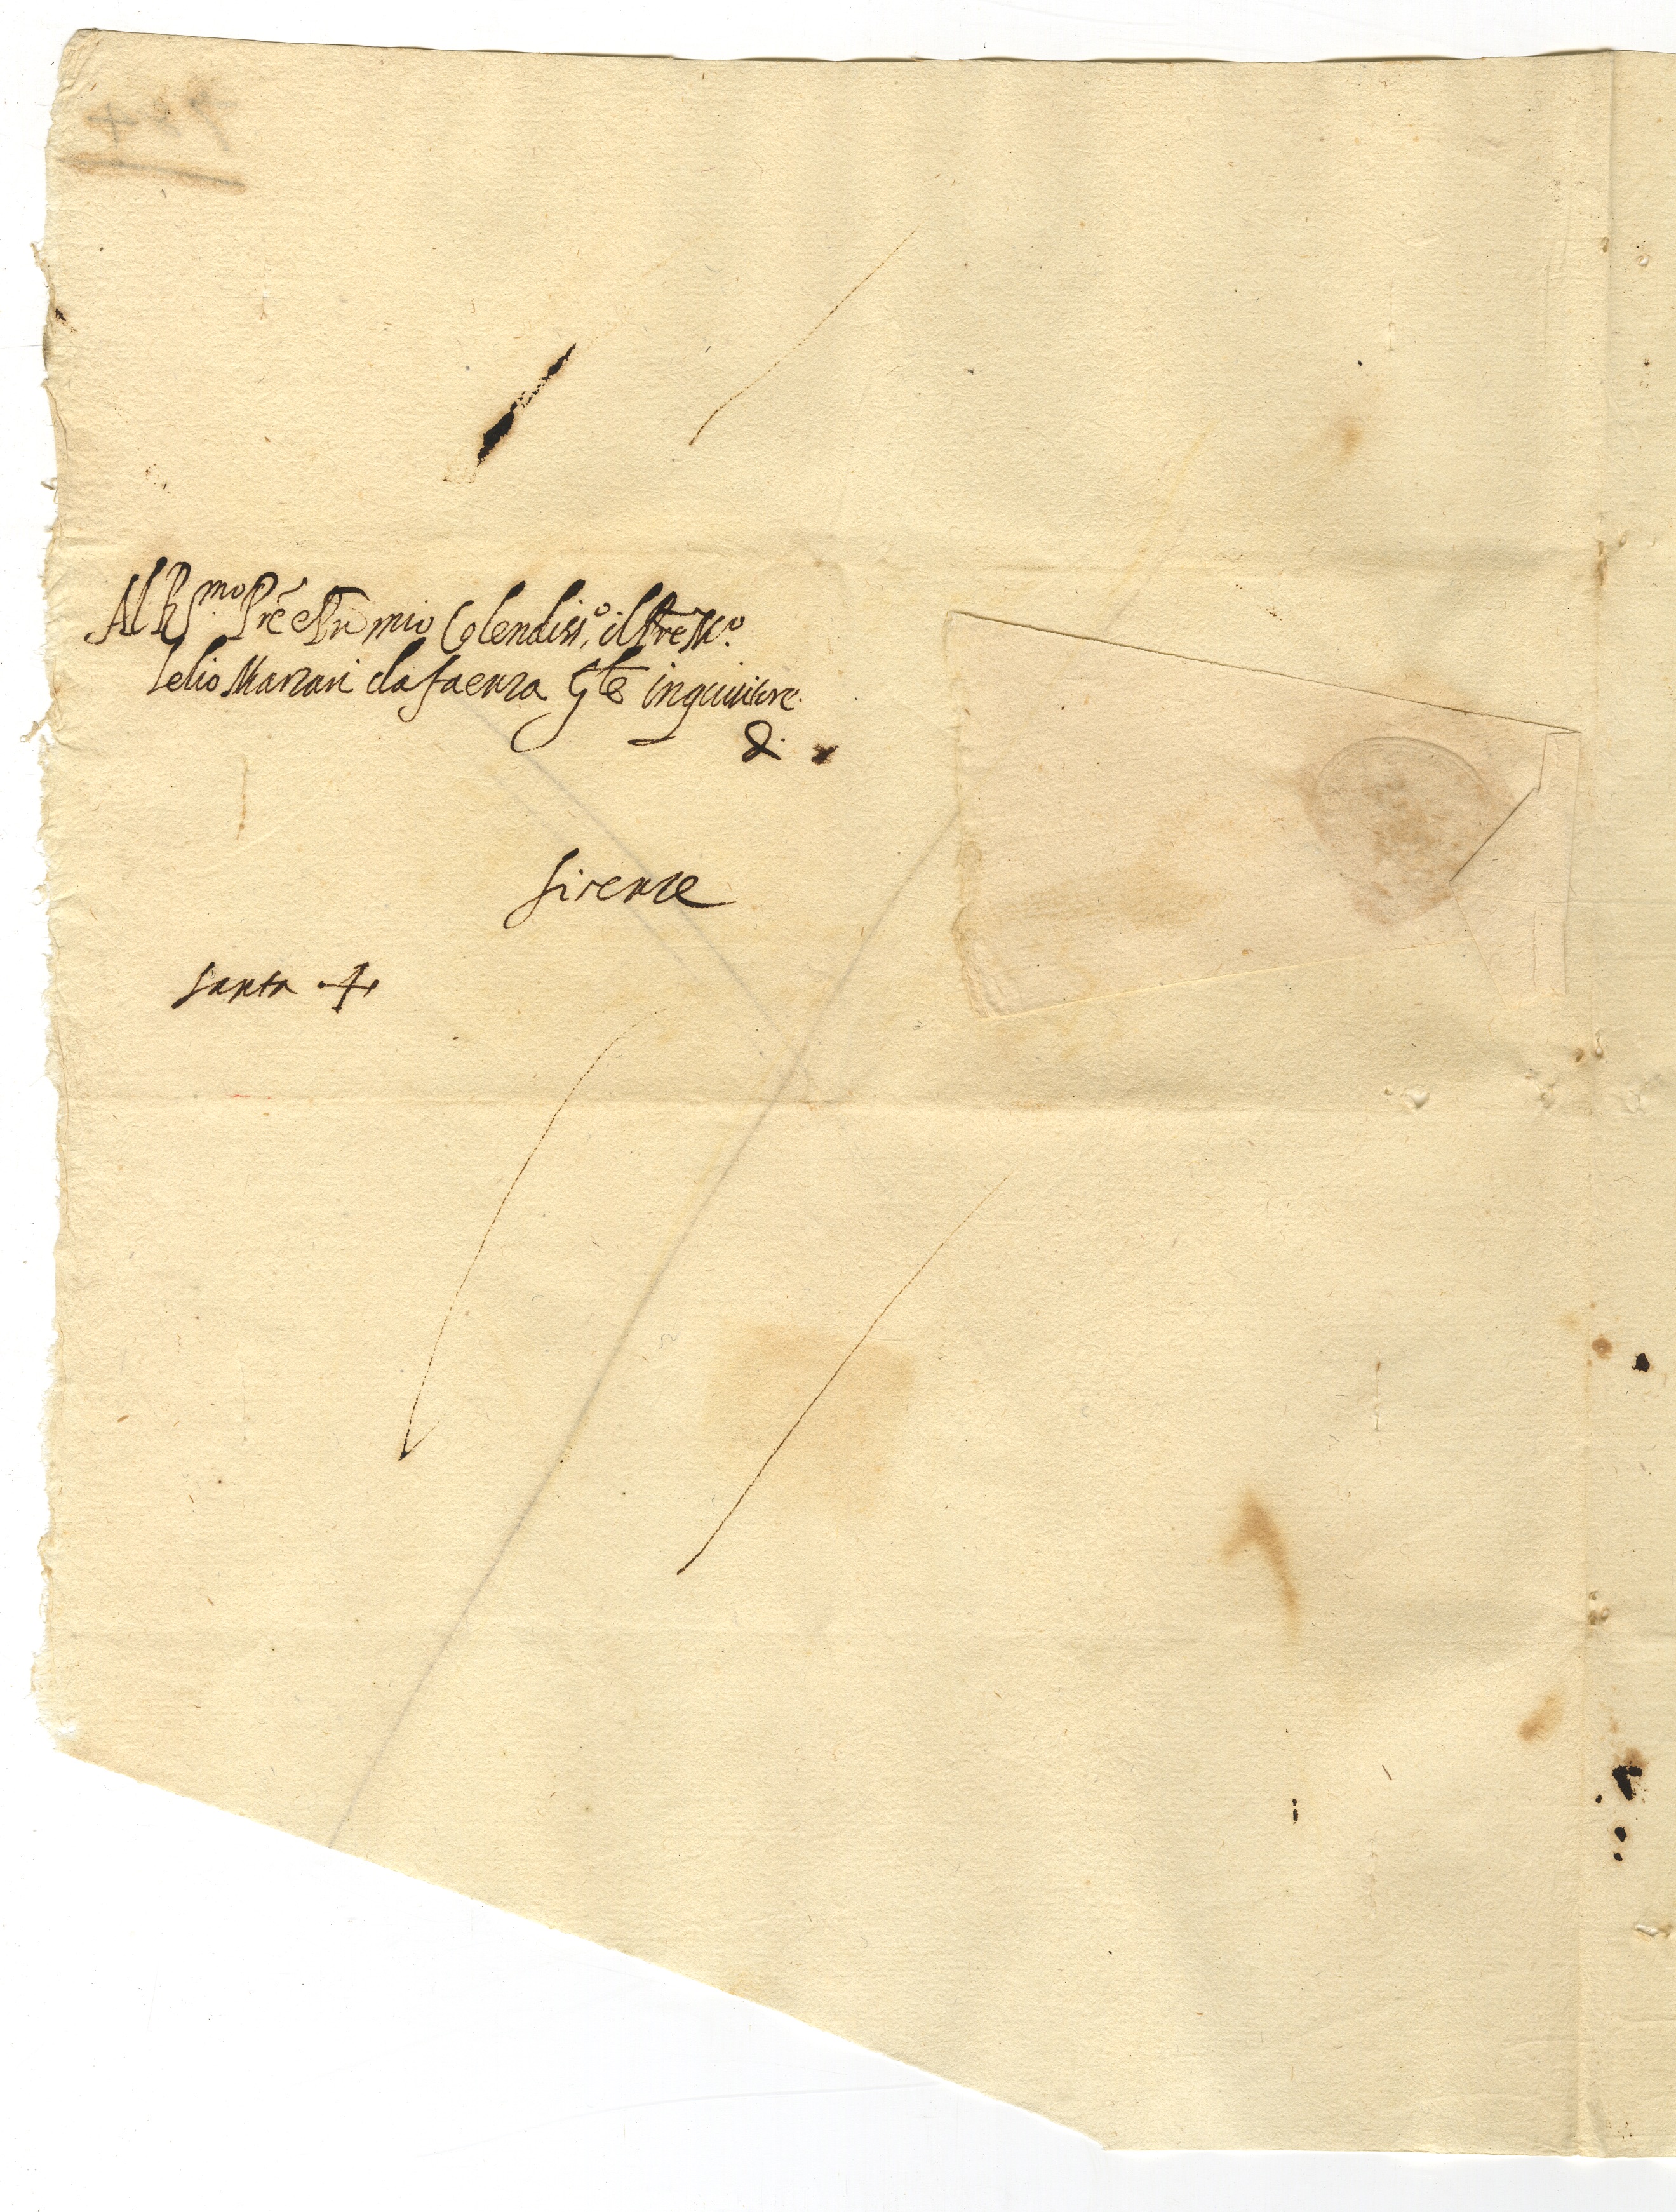 Al R.mo Pre e Prn mio Colendiss.o il Pre M.o
Lelio Marzari da faenza Gle inquisitore
&.
firenze
santa +